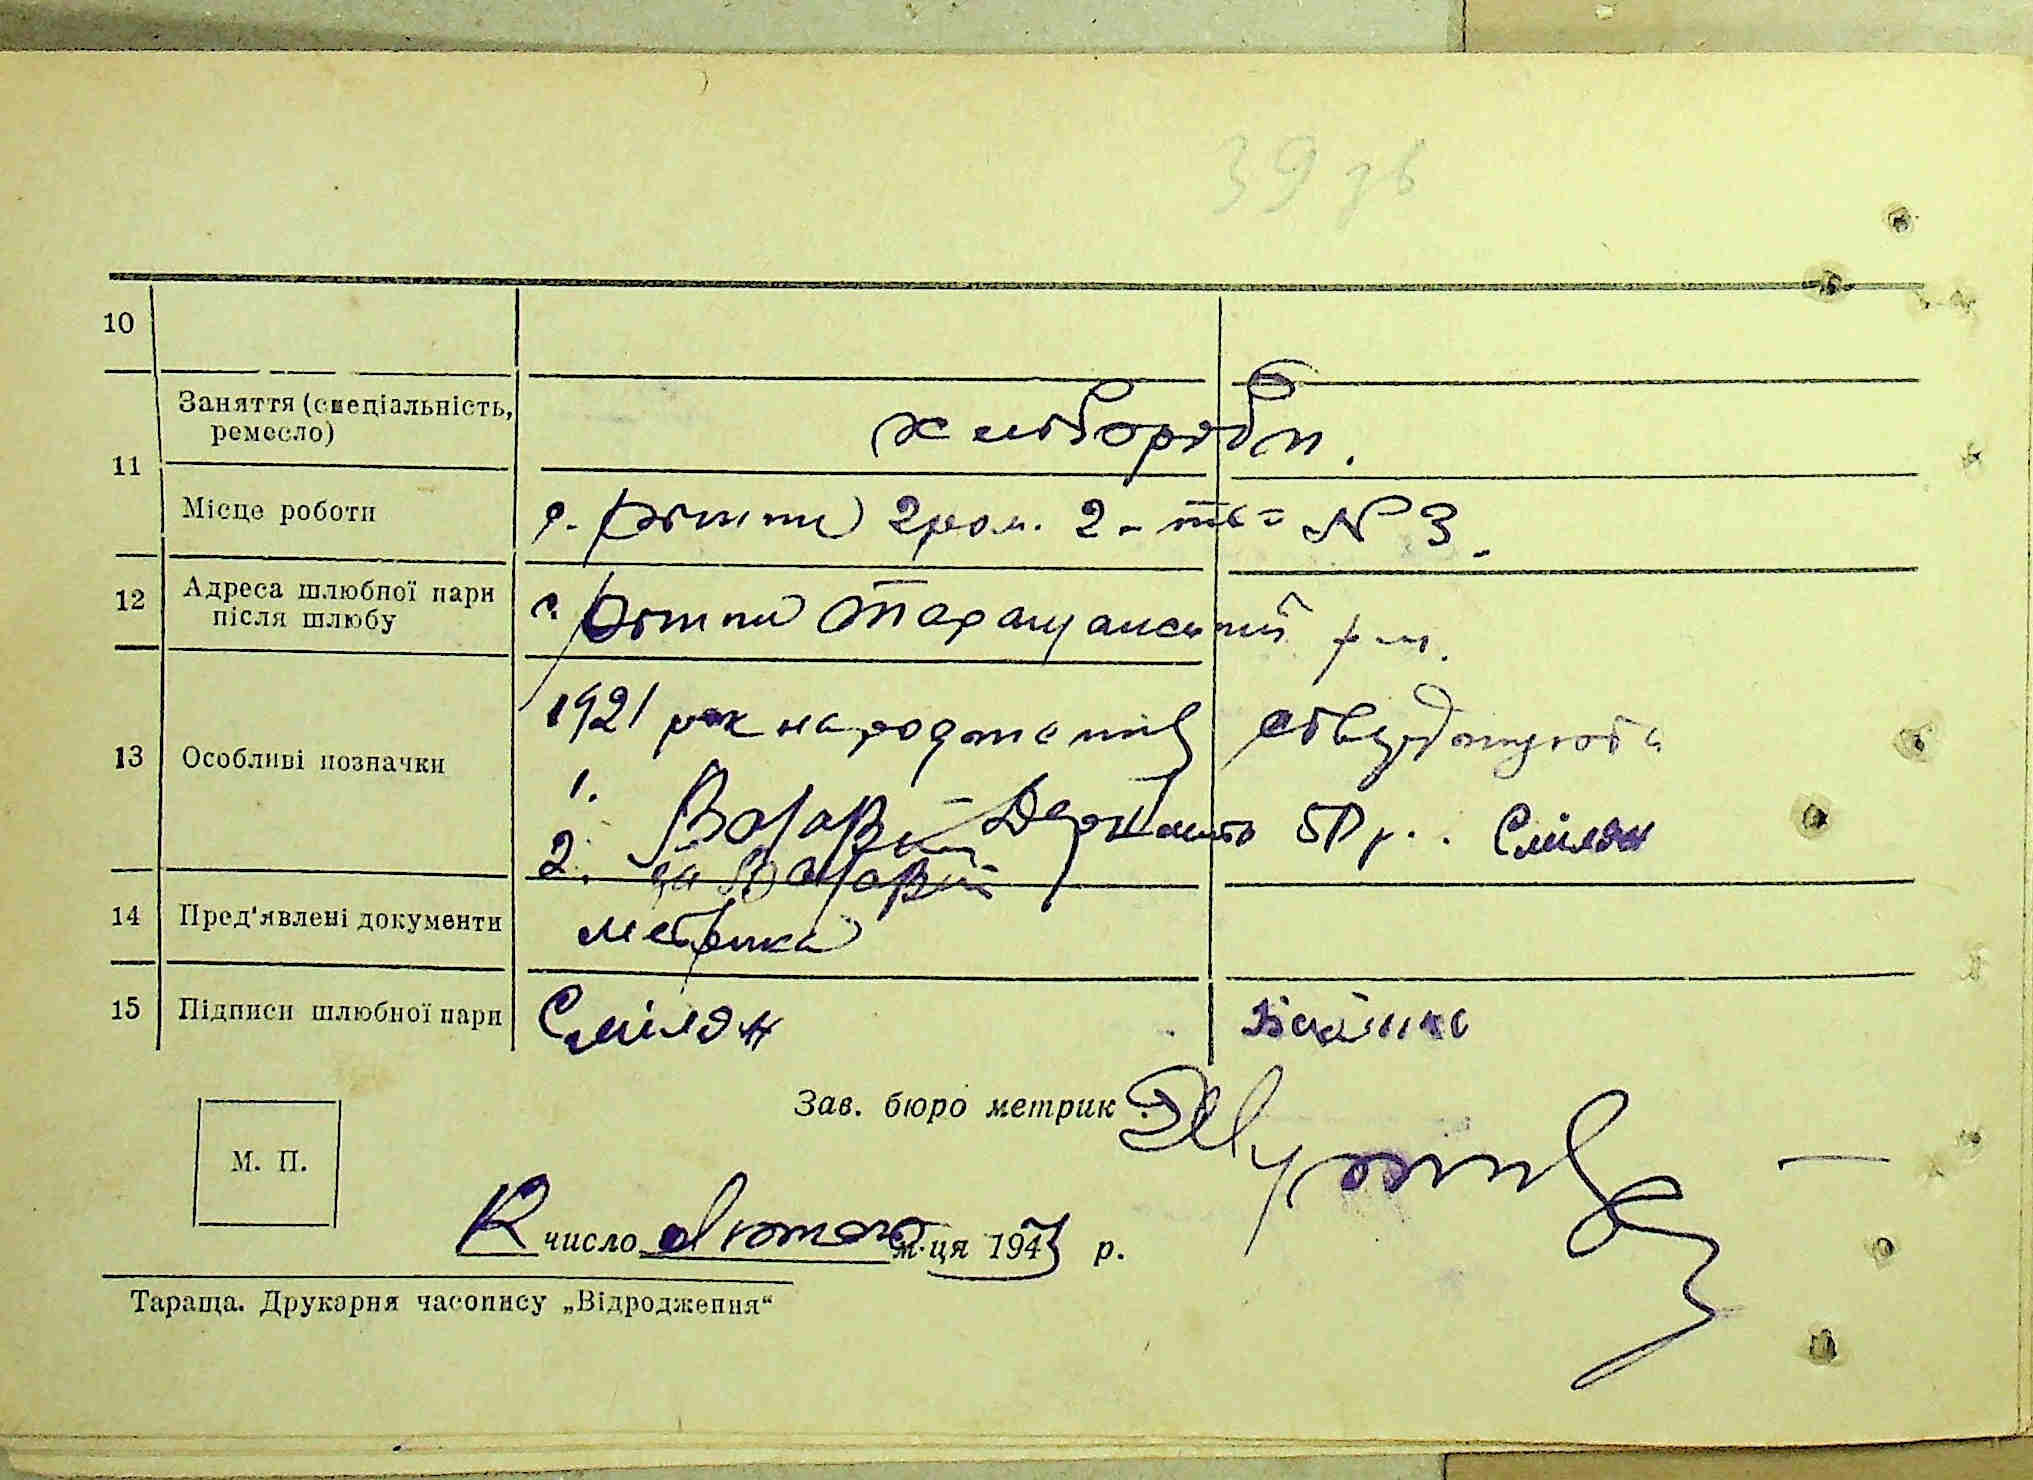 39 зв
10
Заняття (спеціальність,
ремесло)
хлібороби.
11
Місце роботи
с. Ріжки Гром. г-тво N 3.
12
Адреса шлюбної пари
після шлюбу
с. Ріжки Таращанський р-н.
13
Особливі позначки
1921 рік народження стверджують
1.
Держмито 50 р. Сміляк
2.
14
Пред'явлені документи
метрика
15
Підписи шлюбної пари
Сміляк
Зав. бюро метрик
М. П.
число лютого м-ця 1943 р.
Тараща. Друкарня часопису „Відродження“